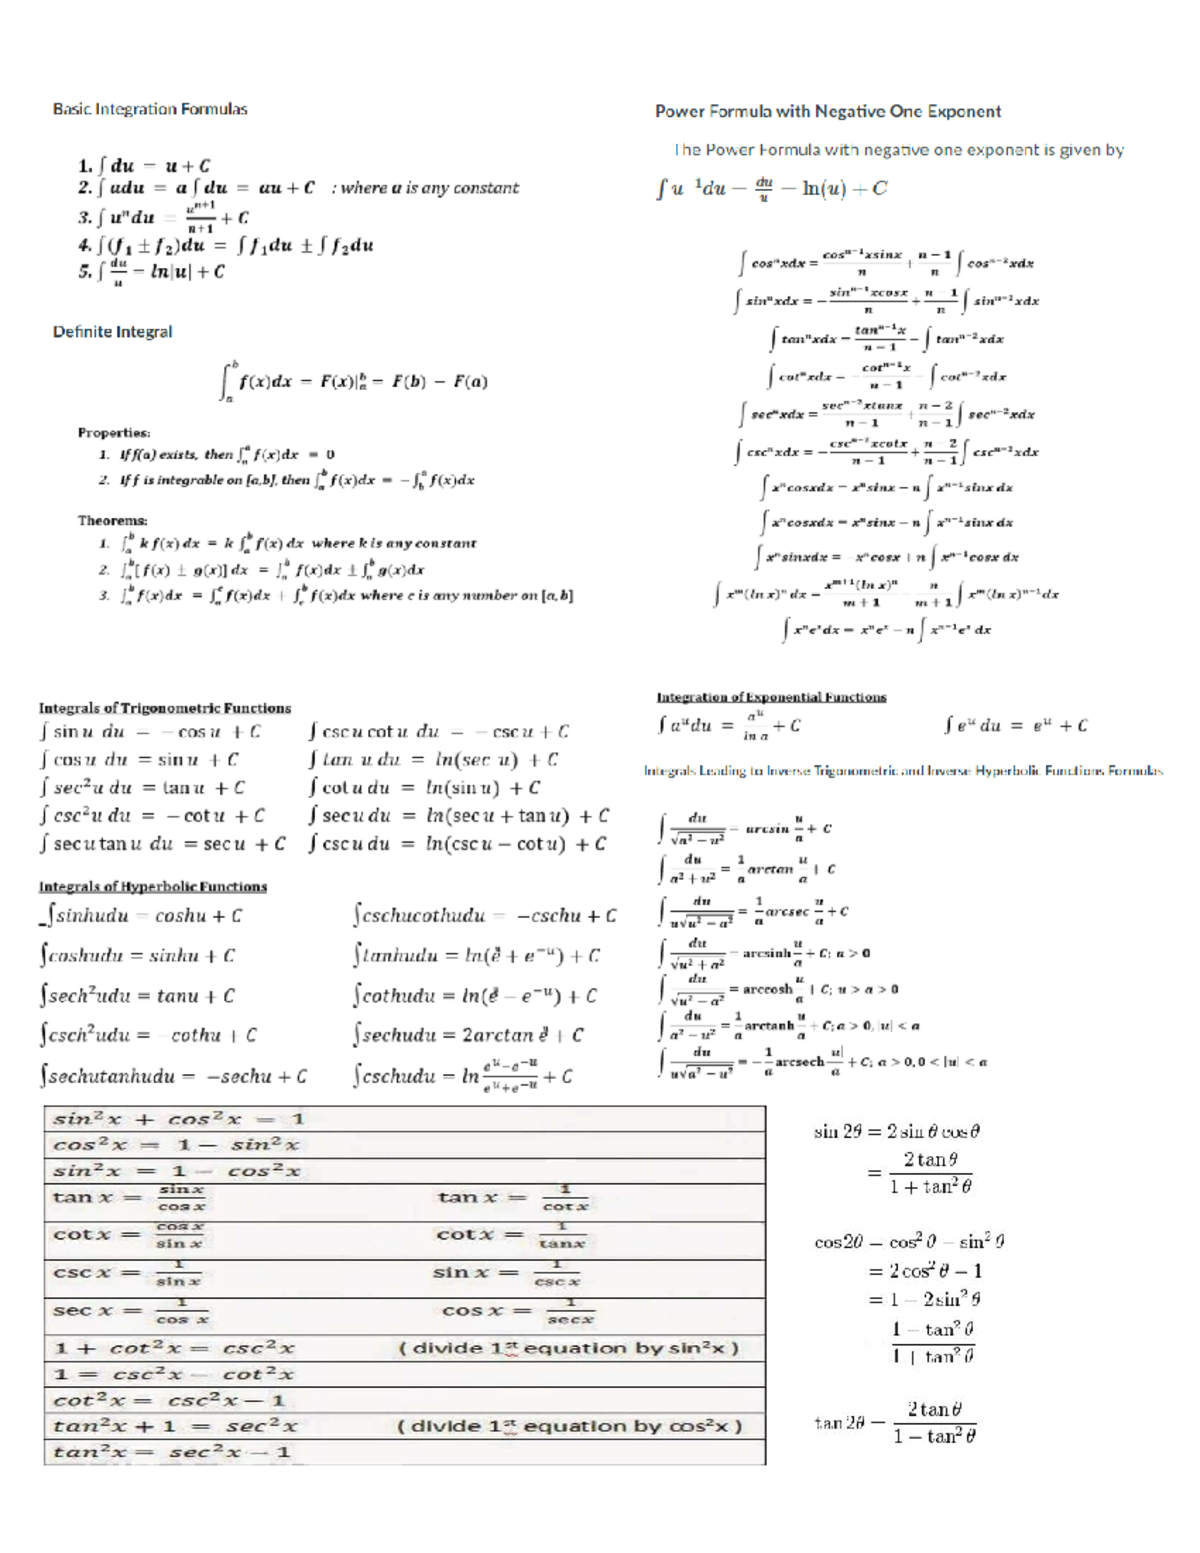 Basic Integration Formulas
1. ∫ du = u + C
2. ∫ adu = a ∫ du = au + C : where a is any constant
3. ∫ uⁿ du = uⁿ⁺¹/(n+1) + C
4. ∫(f₁ ± f₂)du = ∫ f₁du ± ∫ f₂du
5. ∫ du/u = ln|u| + C
Definite Integral
∫ₐᵇ f(x)dx = F(x)|ₐᵇ = F(b) − F(a)
Properties:
1. If f(a) exists, then ∫ₐᵃ f(x)dx = 0
2. If f is integrable on [a,b], then ∫ₐᵇ f(x)dx = −∫_b^a f(x)dx
Theorems:
1. ∫ₐᵇ k f(x) dx = k ∫ₐᵇ f(x) dx where k is any constant
2. ∫ₐᵇ[ f(x) ± g(x)] dx = ∫ₐᵇ f(x)dx ± ∫ₐᵇ g(x)dx
3. ∫ₐᵇ f(x)dx = ∫ₐᶜ f(x)dx + ∫_c^b f(x)dx where c is any number on [a, b]
Power Formula with Negative One Exponent
The Power Formula with negative one exponent is given by
∫ u⁻¹du = du/u = ln(u) + C
∫ cosⁿxdx = cosⁿ⁻¹xsinx/n + (n − 1)/n ∫ cosⁿ⁻²xdx
∫ sinⁿxdx = − sinⁿ⁻¹xcosx/n + (n − 1)/n ∫ sinⁿ⁻²xdx
∫ tanⁿxdx = tanⁿ⁻¹x/(n − 1) − ∫ tanⁿ⁻²xdx
∫ cotⁿxdx = − cotⁿ⁻¹x/(n − 1) − ∫ cotⁿ⁻²xdx
∫ secⁿxdx = secⁿ⁻²xtanx/(n − 1) + (n − 2)/(n − 1) ∫ secⁿ⁻²xdx
∫ cscⁿxdx = − cscⁿ⁻²xcotx/(n − 1) + (n − 2)/(n − 1) ∫ cscⁿ⁻²xdx
∫ xⁿcosxdx = xⁿsinx − n ∫ xⁿ⁻¹sinx dx
∫ xⁿcosxdx = xⁿsinx − n ∫ xⁿ⁻¹sinx dx
∫ xⁿsinxdx = − xⁿcosx + n ∫ xⁿ⁻¹cosx dx
∫ xᵐ(ln x)ⁿ dx = xᵐ⁺¹(ln x)ⁿ/(m + 1) − n/(m + 1) ∫ xᵐ(ln x)ⁿ⁻¹dx
∫ xⁿeˣdx = xⁿeˣ − n ∫ xⁿ⁻¹eˣ dx
Integrals of Trigonometric Functions
∫ sin u du = − cos u + C ∫ csc u cot u du = − csc u + C
∫ cos u du = sin u + C ∫ tan u du = ln(sec u) + C
∫ sec²u du = tan u + C ∫ cot u du = ln(sin u) + C
∫ csc²u du = − cot u + C ∫ sec u du = ln(sec u + tan u) + C
∫ sec u tan u du = sec u + C ∫ csc u du = ln(csc u − cot u) + C
Integrals of Hyperbolic Functions
∫sinhudu = coshu + C ∫cschucothudu = −cschu + C
∫coshudu = sinhu + C ∫tanhudu = ln(e + e⁻ᵘ) + C
∫sech²udu = tanu + C ∫cothudu = ln(e − e⁻ᵘ) + C
∫csch²udu = − cothu + C ∫sechudu = 2arctan e + C
∫sechutanhudu = −sechu + C ∫cschudu = ln (eᵘ−e⁻ᵘ)/(eᵘ+e⁻ᵘ) + C
Integration of Exponential Functions
∫ aᵘdu = aᵘ/ln a + C ∫ eᵘ du = eᵘ + C
Integrals Leading to Inverse Trigonometric and Inverse Hyperbolic Functions Formulas
∫ du/√(a² − u²) = arcsin u/a + C
∫ du/(a² + u²) = 1/a arctan u/a + C
∫ du/(u√(u² − a²)) = 1/a arcsec u/a + C
∫ du/√(u² + a²) = arcsinh u/a + C; a > 0
∫ du/√(u² − a²) = arccosh u/a + C; u > a > 0
∫ du/(a² − u²) = 1/a arctanh u/a + C; a > 0, |u| < a
∫ du/(u√(a² − u²)) = − 1/a arcsech u|/a + C; a > 0, 0 < |u| < a
sin²x + cos²x = 1
cos²x = 1 − sin²x
sin²x = 1 − cos²x
tan x = sin x/cos x tan x = 1/cot x
cot x = cos x/sin x cot x = 1/tanx
csc x = 1/sin x sin x = 1/csc x
sec x = 1/cos x cos x = 1/secx
1 + cot²x = csc²x ( divide 1st equation by sin²x )
1 = csc²x − cot²x
cot²x = csc²x − 1
tan²x + 1 = sec²x ( divide 1st equation by cos²x )
tan²x = sec²x − 1
sin 2θ = 2 sin θ cos θ
= 2 tan θ/(1 + tan² θ)
cos2θ = cos² θ − sin² θ
= 2 cos² θ − 1
= 1 − 2 sin² θ
(1 − tan² θ)/(1 + tan² θ)
tan 2θ = 2 tan θ/(1 − tan² θ)